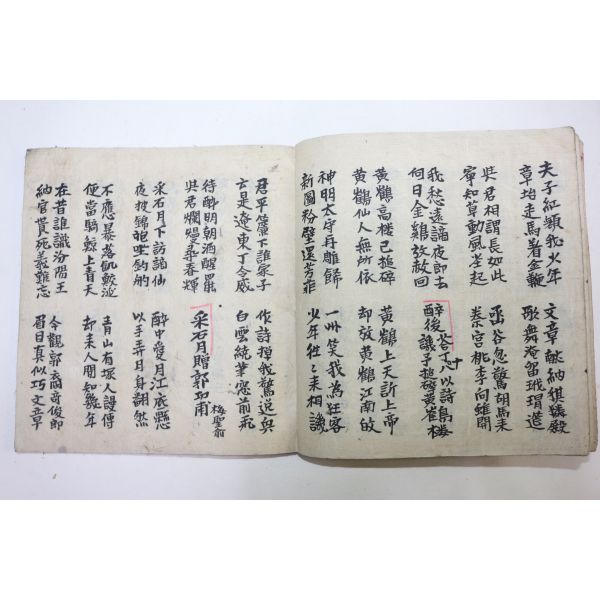 夫子紅顏我少年　文章献納猉獜殿
章坮走馬着金鞭　歌舞淹留玳瑁筵
吳君相謂長如此　函谷忽驚胡馬来
寧知草動風差起　秦宮桃李向誰開
我愁遠謫夜即去
何日金鷄放赦回
醉後答丁十八以詩譏予搥碎黃崔樓
黃鶴高樓已搥碎　黃鶴上天訴上帝
黃鶴仙人無所依　却放黃鶴江南故
神明太守再雕飾　一州笑我為狂客
新圖粉壁還芳菲　少年往々来相譏
君平簾下誰家子　作詩掉我驚逸兴
云是遼東丁令威　白雲繞筆窓前飛
待酔明朝酒醒罷
吳君爛熳尋春輝
采石月贈郭功甫　梅聖俞
采石月下訪謫仙　醉中愛月江底懸
夜披錦袍坐釣船　以手弄月身翻然
不應暴落飢蛟涎　青山有塚人謾傳
便當騎鯨上青天　却来人間知幾年
在昔誰識汾陽王　今觀郭裔奇俊郎
納官貰死義難忘　眉目真似巧文章